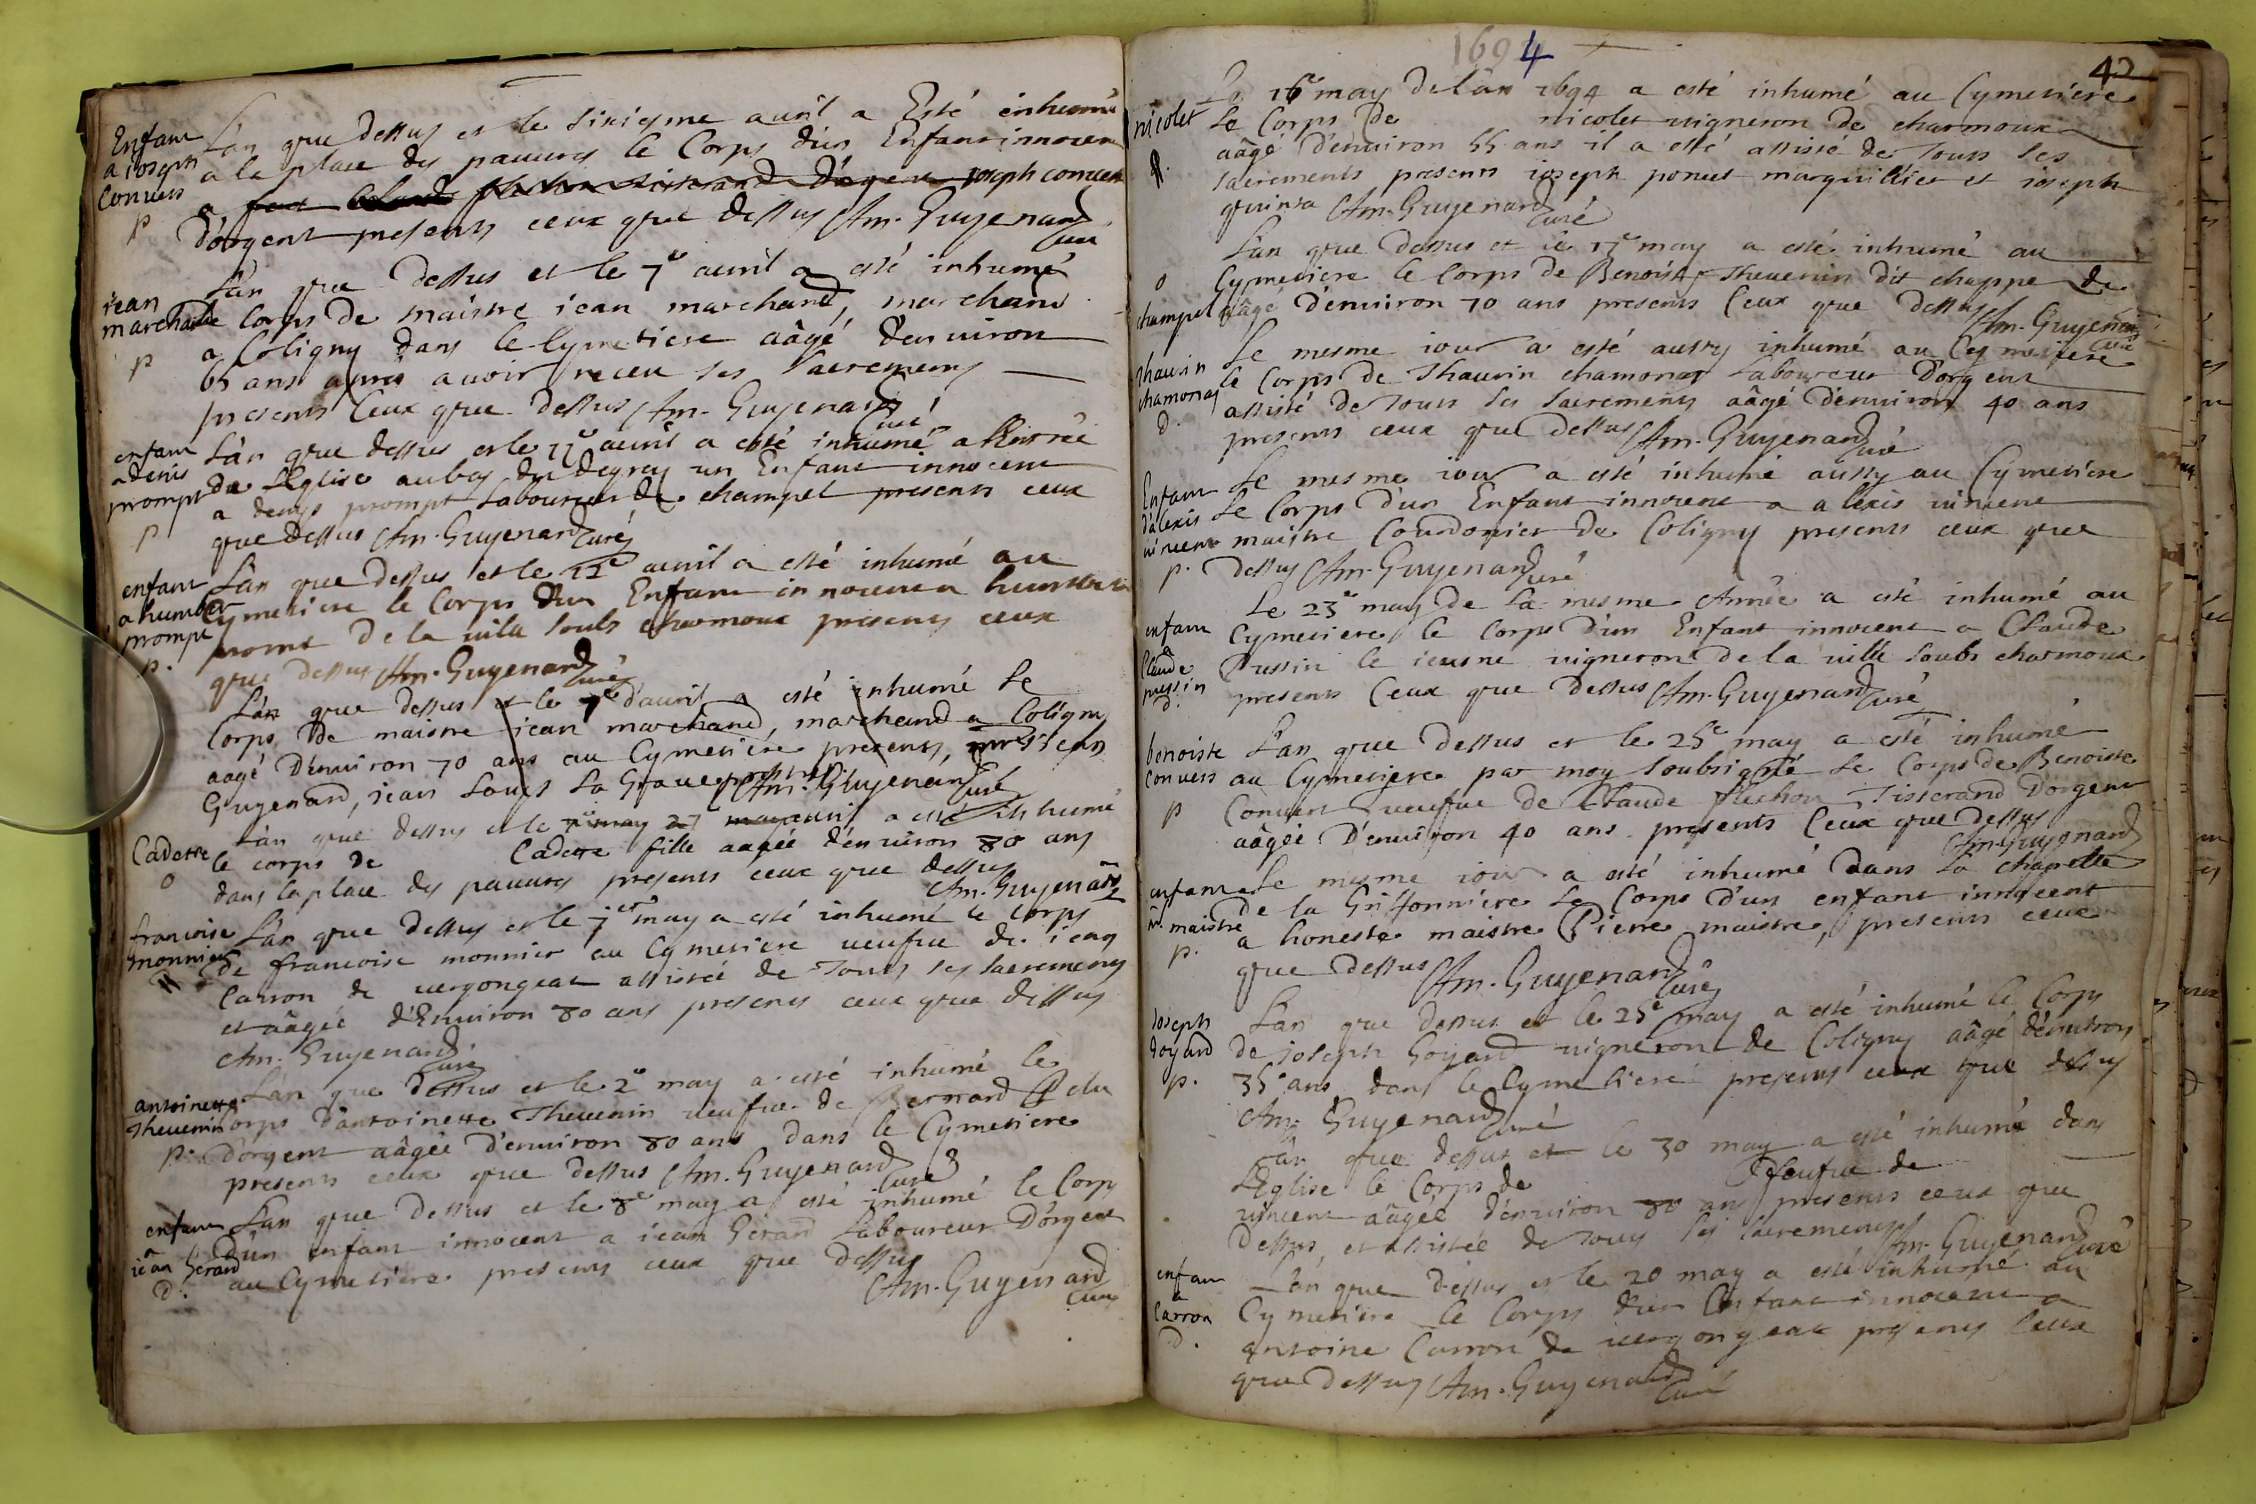 Enfant
a ioseph
Convers
p
L'an que dessus et le sixiesme avril a Esté inhumé
a la place des pauures le Corps d'un Enfant innocent
a ioseph convers
d'orgent presents ceux que dessus Am. Guyenard
Curé
iean
marchand
p
L'an que dessus et le 7e auril a esté inhumé
le Corps de maistre iean marchand, marchand
a Coligny dans le Cymetiere aâgé d'enuiron
65 ans apres auoir receu ses sacrements
presents Ceux que dessus Am. Guyenard
Curé
enfant
a denis
prompt
p
L'an que dessus et le 11e auril a esté inhumé a l'Entrée
de L'Eglise au bas des degrez un Enfant innocent
a denys prompt Laboureur de champel presents ceux
que dessus Am. Guyenard Curé
enfant
a humber
prompt
p.
L'an que dessus et le 12e auril a esté inhumé au
Cymetiere le Corps d'un Enfant innocent a humbert
promt de la uille soubs charmoux presents ceux
que dessus Am. Guyenard Curé
L'an que dessus et le 7e d'auril a esté inhumé Le
Corps de maistre iean marchand, marchand a Coligny
aagé d'enuiron 70 ans au Cymetiére presents, iean
Guyenard, iean Louis La Graue Am. Guyenard Curé
Cadette
o
L'an que dessus et le 27 auril a esté inhumé
le corps de Cadette fille aagée d'enuiron 80 ans
dans la place des pauures presents ceux que dessus
Am. Guyenard
francoise
monnier
L'an que dessus et le 1er may a esté inhumé le corps
de francoise monnier au Cymetiere ueufue de iean
Carron de uergongeat assistée de Tous ses sacrements
et aâgée d'Enuiron 80 ans presents ceux que dessus
Am. Guyenard
Curé
antoinette
Theuenin
p.
L'an que dessus et le 2e may a esté inhumé le
Corps d'antoinette Theuenin ueufue de Bernard
d'orgent aâgée d'enuiron 80 ans dans le Cymetiere
presents ceux que dessus Am. Guyenard
Curé
enfant
a
iean Gerand
d.
L'an que dessus et le 8e may a esté inhumé le Corps
D'un enfant innocent a iean Gerand Laboureur d'orgent
au Cymetiere presents ceux que dessus
Am. Guyenard
Curé
1694
42
nicolet
Le 16e may de l'an 1694 a esté inhumé au Cymetiere
Le Corps de nicolet uigneron de charmoux
aâgé d'enuiron 55 ans il a esté assisté de Tous ses
sacrements presents ioseph poncet marguillier et ioseph
quinsa Am. Guyenard
Curé
o
champel
L'an que dessus et le 17e may a esté inhumé au
Cymetiere le Corps de Benoist Theuenin dit chappe de
aâgé d'enuiron 70 ans presents Ceux que dessus
Am. Guyenard
Curé
Thaurin
chamonar
d.
Le mesme iour a esté aussy inhumé au Cymetiere
le Corps de Thaurin chamonar Laboureur d'orgent
assisté de Tous ses sacrements aâgé d'enuiron 40 ans
presents ceux que dessus Am. Guyenard
Curé
Enfant
d'alexis
uincent
p.
Le mesme iour a esté inhumé aussy au Cymetiere
Le Corps d'un Enfant innocent a alexis uincent
maistre Courdonier de Coligny presents ceux que
dessus Am. Guyenard
Curé
enfant
a
Claude
pussin
d.
Le 23e may de la mesme Année a esté inhumé au
Cymetiere le Corps d'un Enfant innocent a Claude
Pussin le ieusne uigneron de la uille soubs charmoux
presents Ceux que dessus Am. Guyenard
Curé
benoiste
convers
p
L'an que dessus et le 25e may a esté inhumé
au Cymetiere par moy soubsigné Le Corps de Benoiste
Convert ueufue de Claude Tisserand d'orgent
aâgée d'enuiron 40 ans presents Ceux que dessus
Am. Guyenard
enfant a
m. maistre
p.
Le mesme iour a esté inhumé dans La chapelle
de la Griffonniere Le Corps d'un enfant innocent
a honeste maistre Pierre maistre, presents ceux
que dessus Am. Guyenard
Curé
Ioseph
Goyard
p.
L'an que dessus et le 25e may a esté inhumé le Corps
de Ioseph Goyard uigneron de Coligny aâgé d'enuiron
35 ans dans le Cymetiere presents ceux que dessus
Am. Guyenard
Curé
L'an que dessus et le 30 may a esté inhumé dans
L'Eglise le Corps de Ueufue de
uincent aâgée d'enuiron 80 ans presents ceux que
dessus, et assistée de Tous ses sacrements Am. Guyenard
Curé
enfant
a
Carron
d.
L'an que dessus et le 20 may a esté inhumé au
Cymetiere le Corps d'un Enfant innocent a
antoine Carron de uergongeat presents Ceux
que dessus Am. Guyenard
Curé